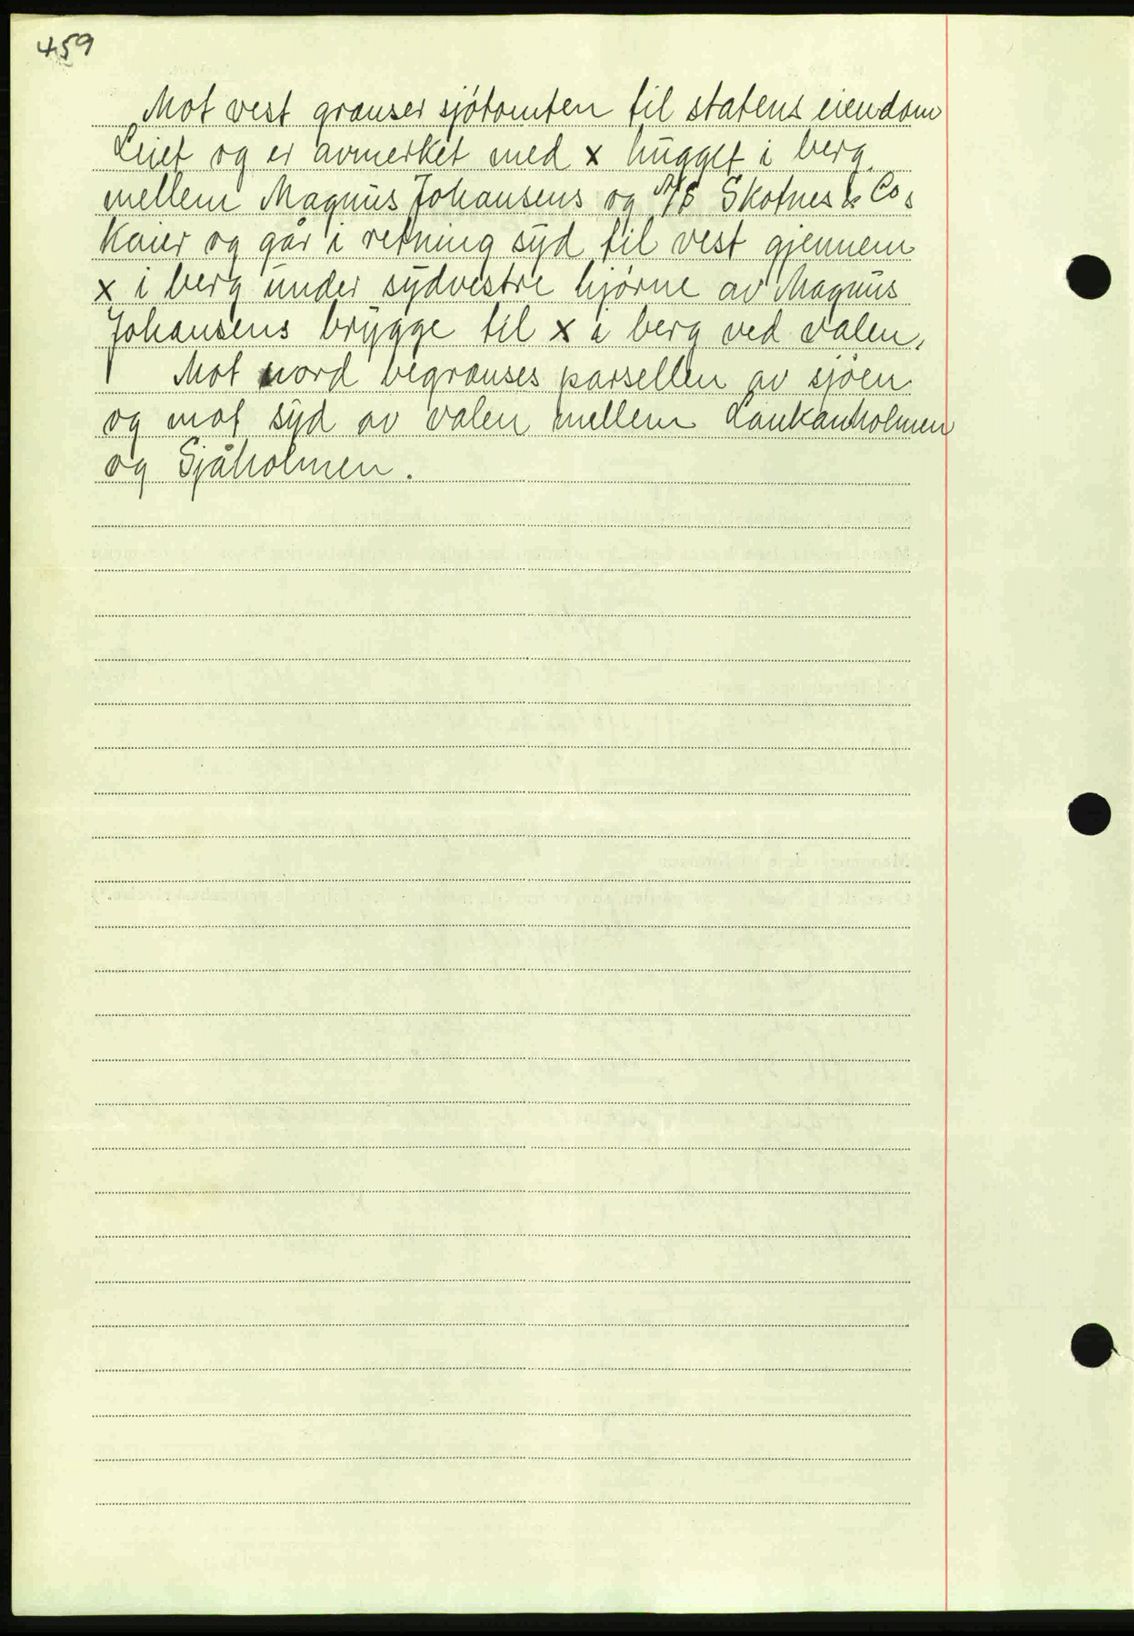 459
Mot vest grenser sjøtomten til statens eiendom
Leiet og er avmerket med x hugget i berg
mellem Magnus Johansens og A/S Skotnes & Co s
kaier og går i retning syd til vest gjennem
x i berg under sydvestre hjørne av Magnus
Johansens brygge til x i berg ved valen.
Mot nord begrenses parsellen av sjøen
og mot syd av valen mellem Laukanholmen
og Sjåholmen.